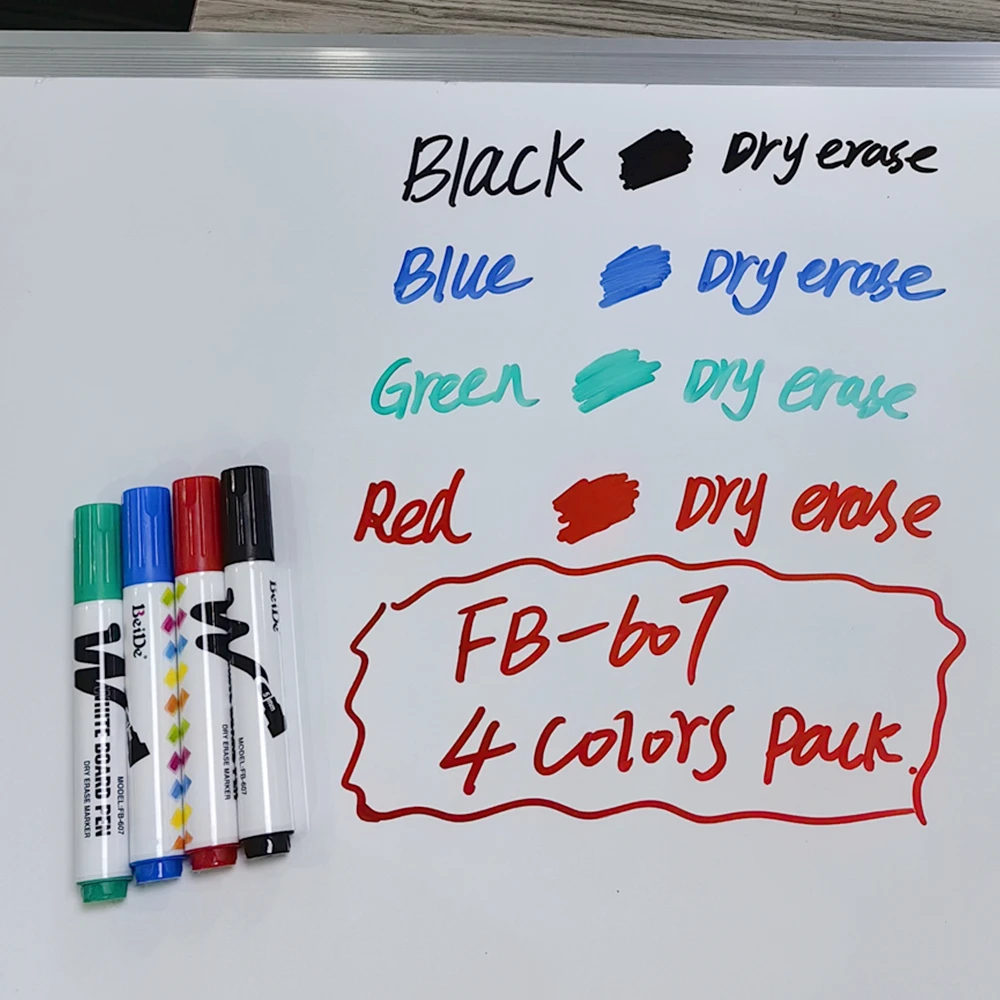 Black Dry erase
Blue Dry erase
Green Dry erase
Red Dry erase
FB-607
4 Colors Pack.
BeiDe
BeiDe
WHITE BOARD PEN
DRY ERASE MARKER
MODEL:FB-607
DRY ERASE MARKER
MODEL:FB-607